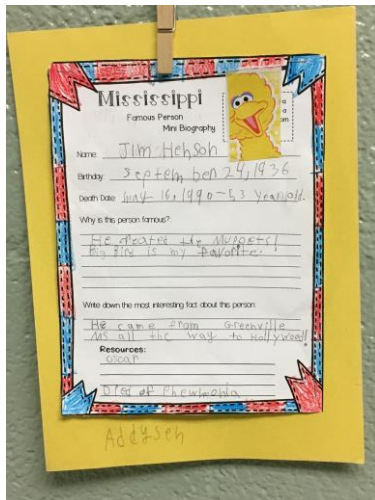 Mississippi
Famous Person
Mini Biography
Name Jim Henson
Birthday September 24, 1936
Death Date may 16, 1990-53 years old.
Why is this person famous?
He creates the Muppets!
Big Bird is my favorite.
Write down the most interesting fact about this person:
He came from Greenville
MS all the way to Hollywood!
Resources:
oscar
Died of Phewmonia
Addysen